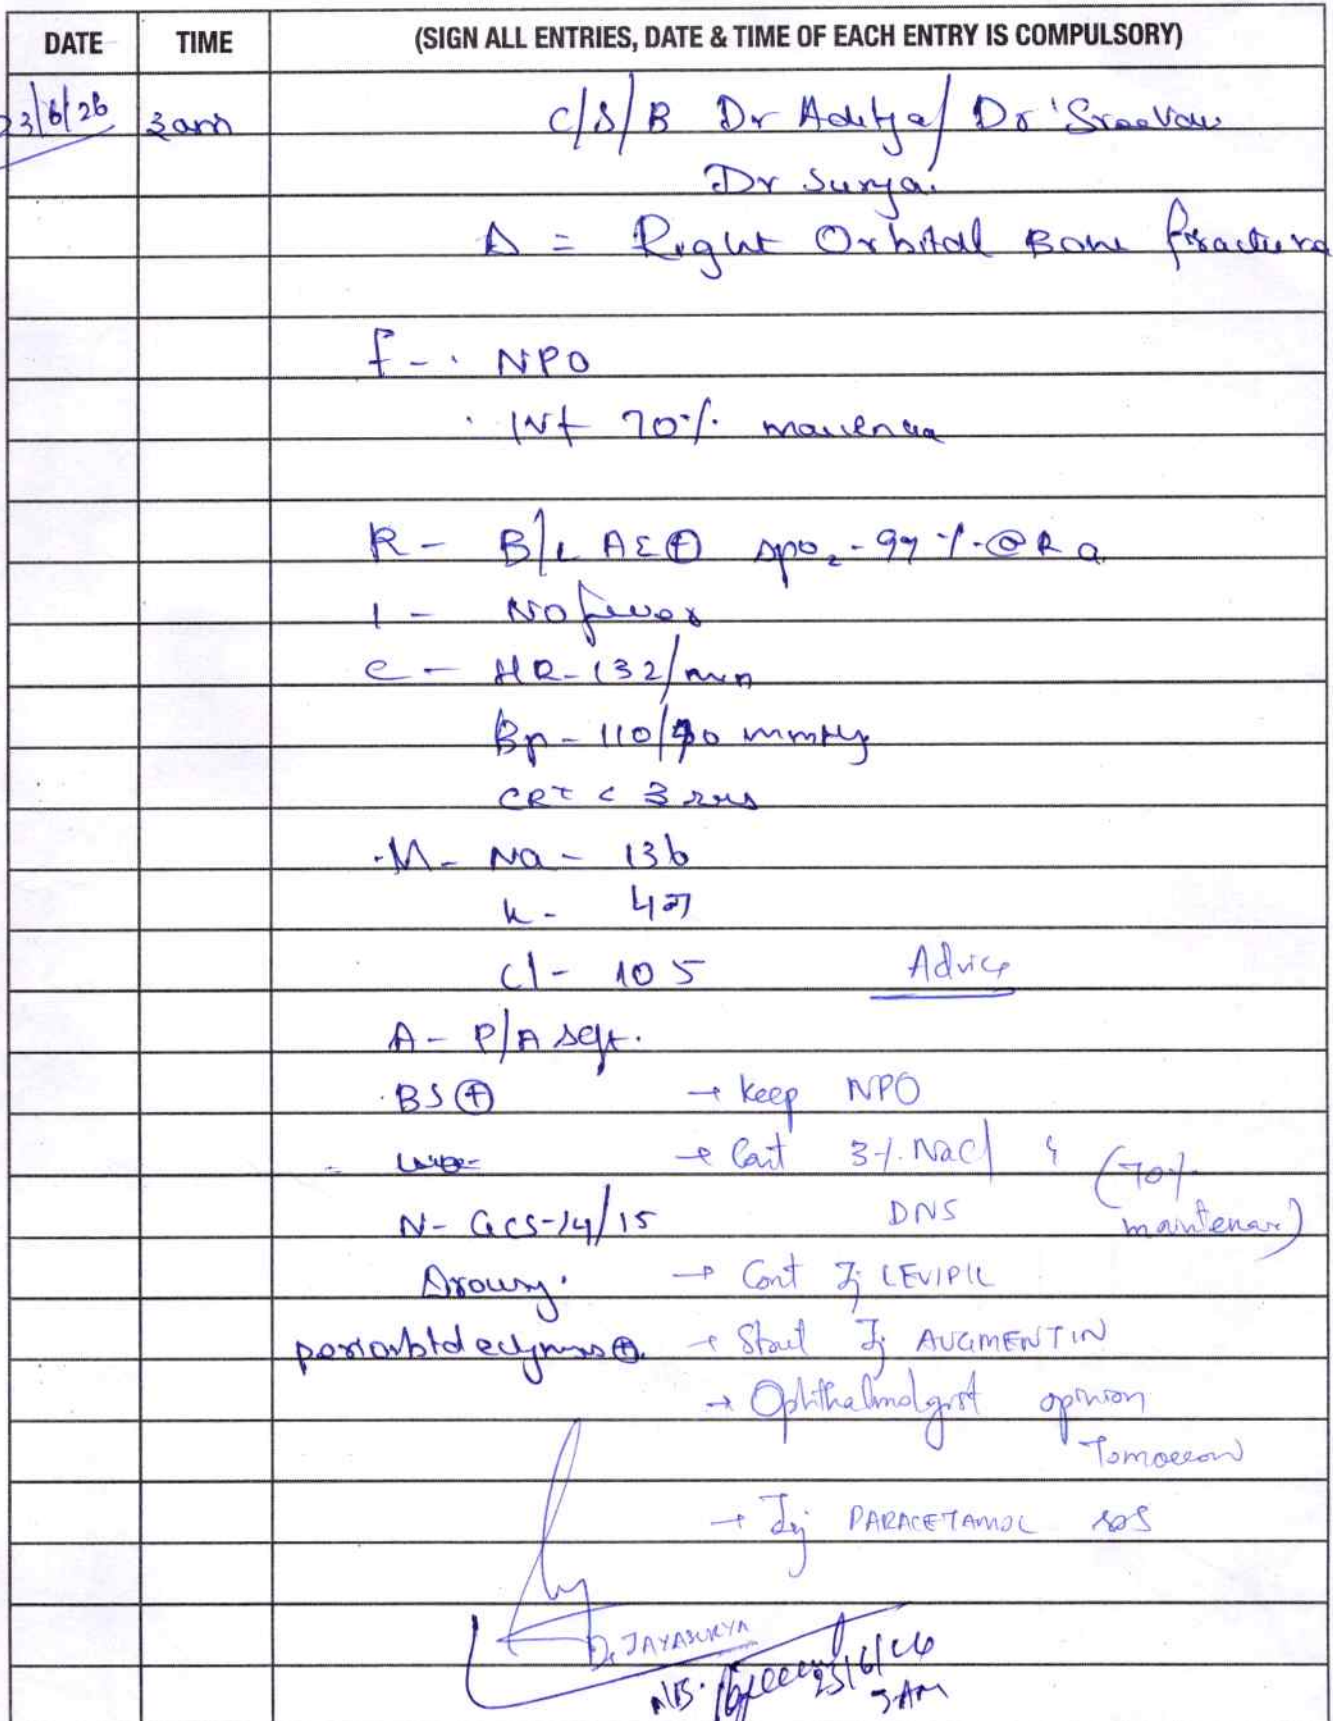 DATE TIME (SIGN ALL ENTRIES, DATE & TIME OF EACH ENTRY IS COMPULSORY)
23/6/26 3am C/S/B Dr Aditya/ Dr Sreevan
Dr Surya.
Δ = Right Orbital Bone fracture
F - . NPO
. IVF 70%
R - B/L AE⊕ SpO₂ - 99 % @ R a
I - No fever
C - HR - 132/min
Bp - 110/70 mmHg
CRT < 3 secs
M - Na - 136
K -
Cl - 105
Advice
A - P/A soft.
BS ⊕ → keep NPO
→ Cont 3% NaCl & (70%
N - GCS - 14/15 DNS maintenan)
Drowsy. → Cont Inj LEVIPIL
→ Start Inj AUGMENTIN
→ Ophthalmolgist opinion
Tomorrow
→ Inj PARACETAMOL SOS
Dr JAYASURYA
23/6/26
3AM